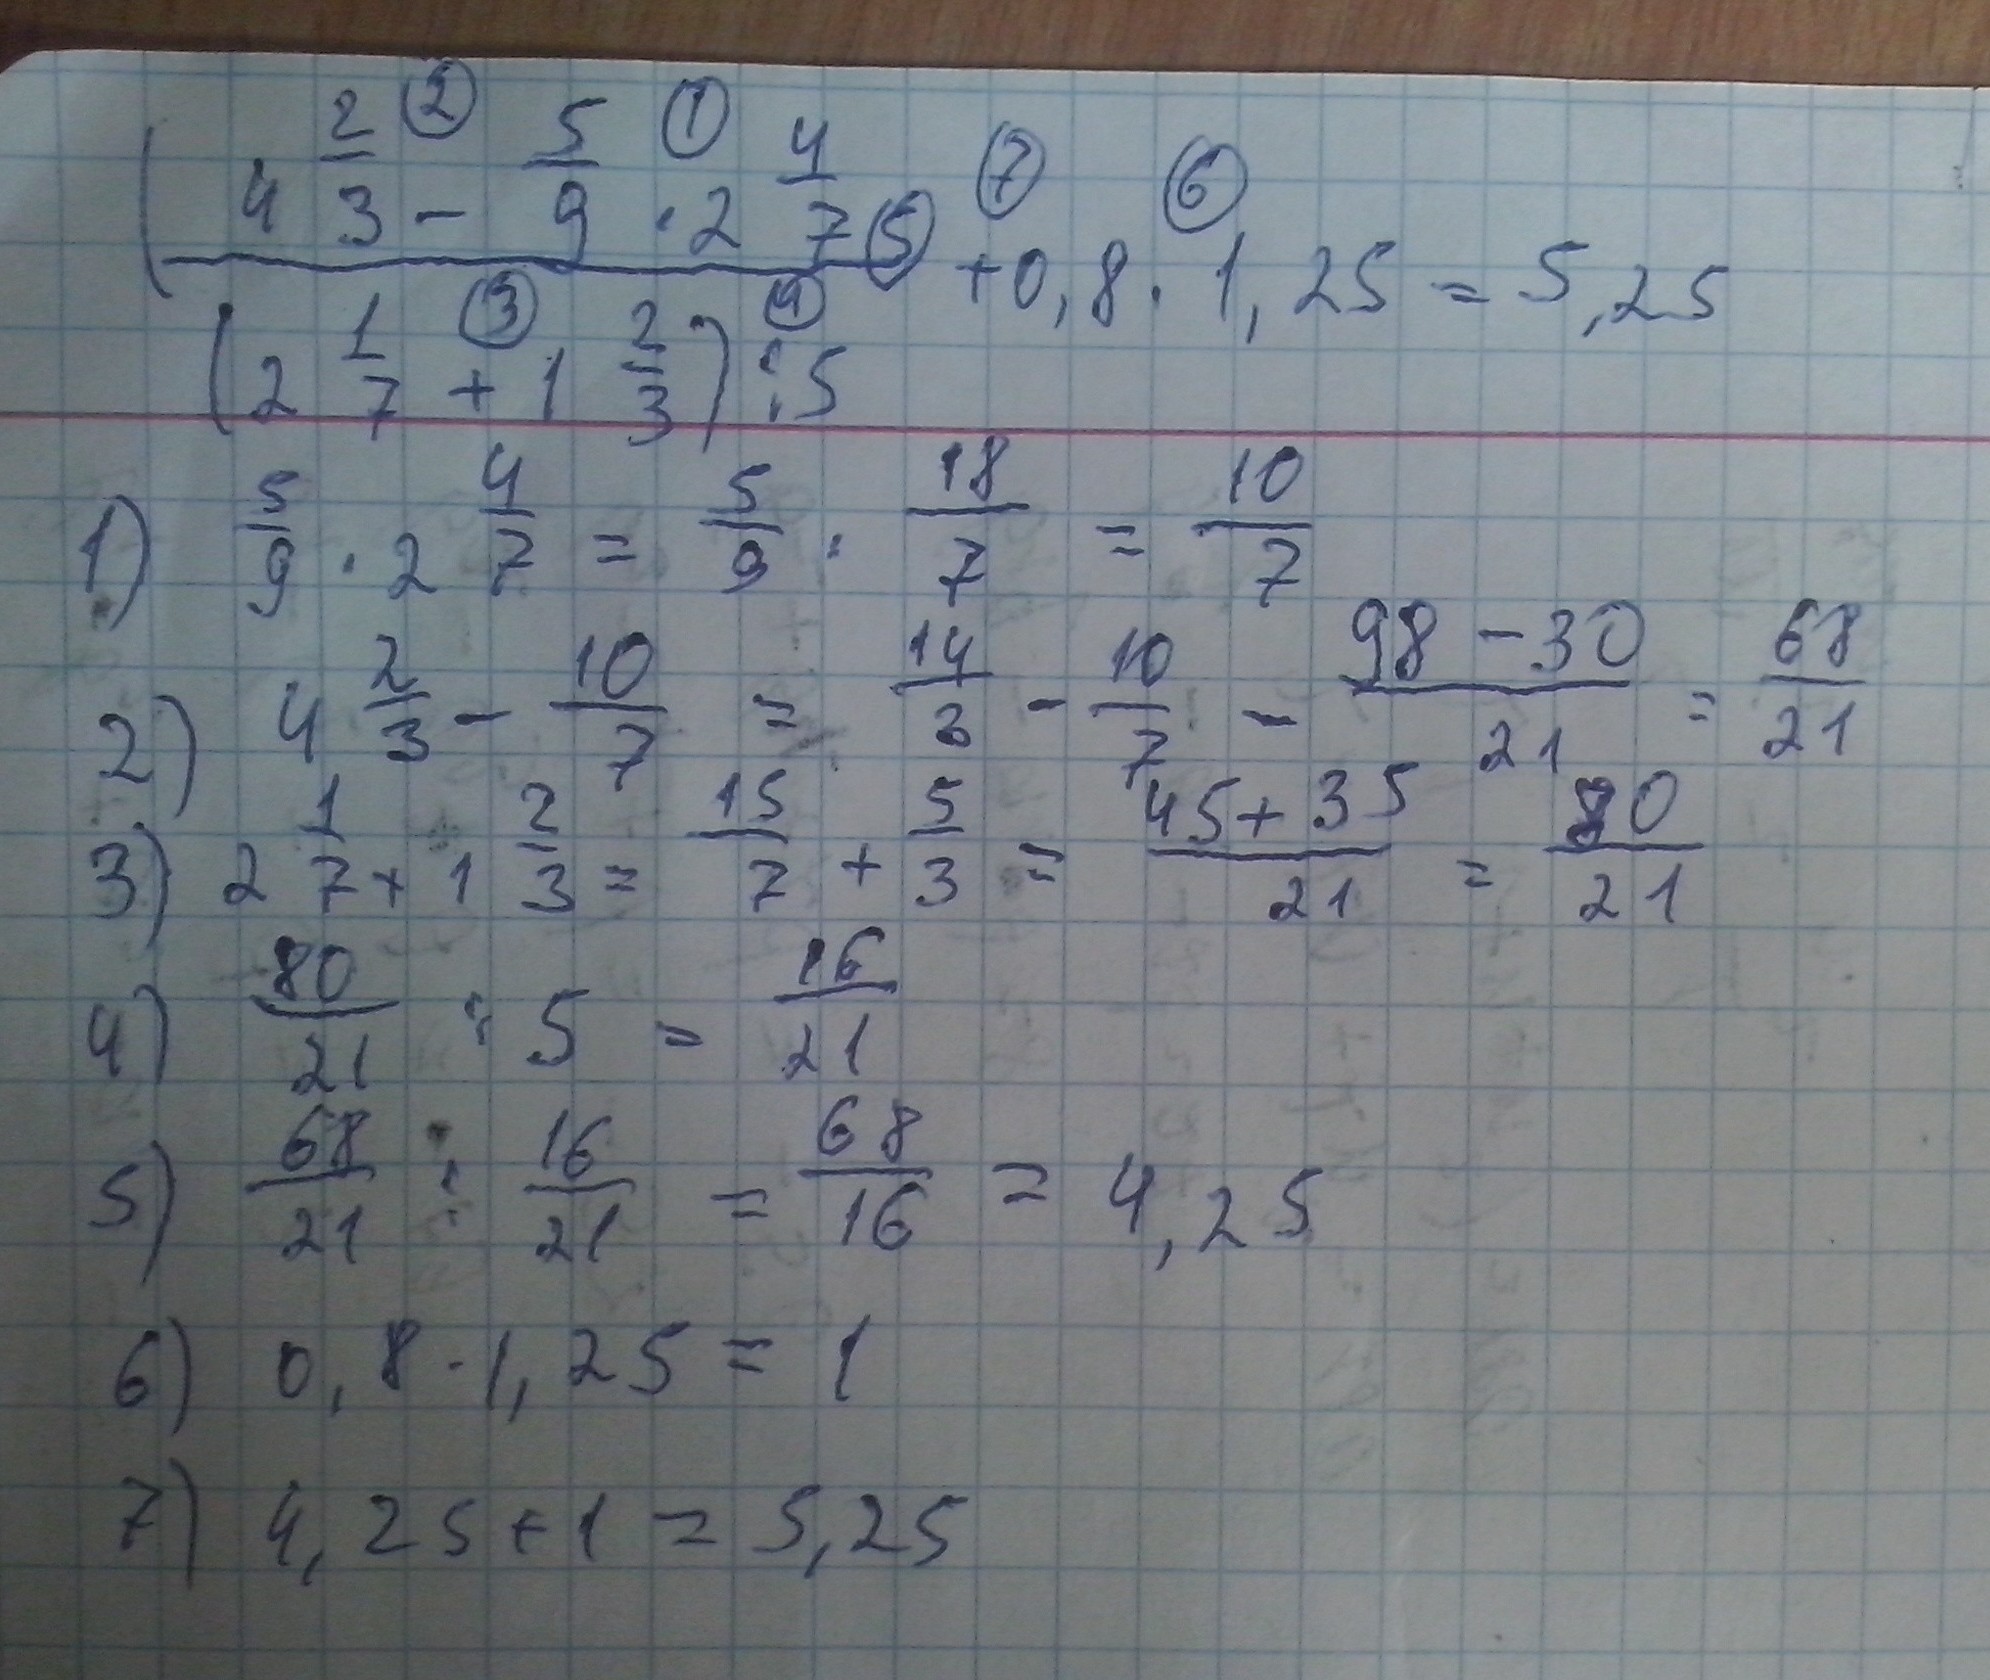 ( 4 2/3 ② - 5/9 ① · 2 4/7 ⑤ ⑦ + 0,8 ⑥ · 1,25 = 5,25
( 2 1/7 ③ + 1 2/3 ) ④ : 5
1) 5/9 · 2 4/7 = 5/9 · 18/7 = 10/7
2) 4 2/3 - 10/7 = 14/3 - 10/7 - 98 - 30/21 = 68/21
3) 2 1/7 + 1 2/3 = 15/7 + 5/3 = 45 + 35/21 = 80/21
4) 80/21 : 5 = 16/21
5) 68/21 : 16/21 = 68/16 = 4,25
6) 0,8 · 1,25 = 1
7) 4,25 + 1 = 5,25